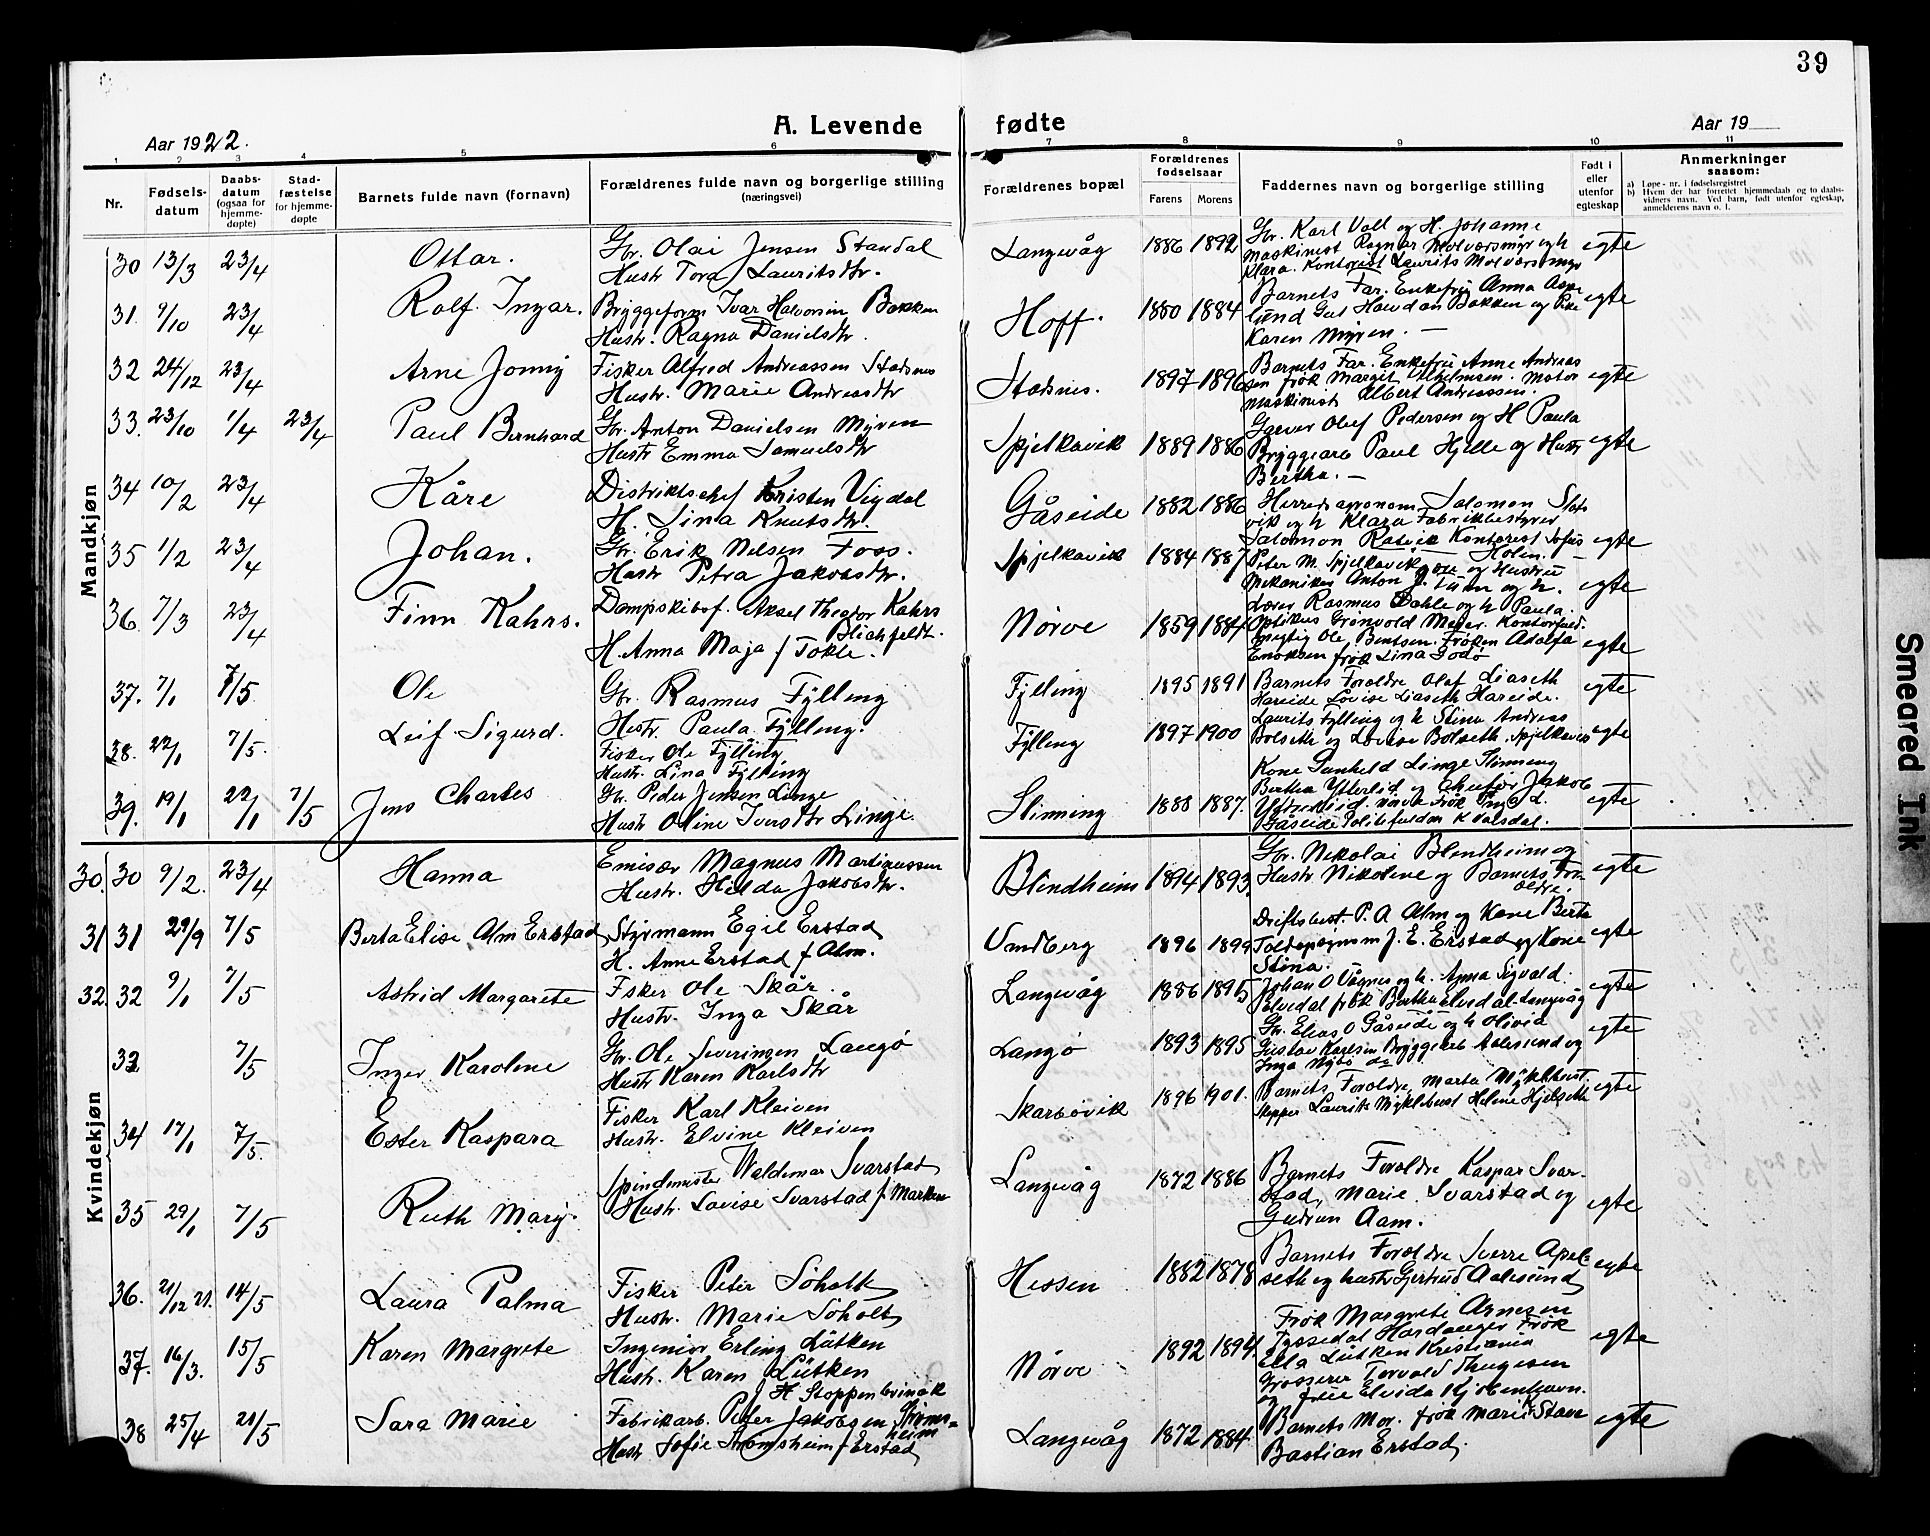 39
Aar 1922.
A. Levende fødte
Aar 19
1 2 3 4 5 6 7 8 9 10 11
Nr.
Fødsels-
datum
Daabs-
datum
(ogsaa for
hjemme-
døpte)
Stad-
fæstelse
for hjemme-
døpte
Barnets fulde navn (fornavn)
Forældrenes fulde navn og borgerlige stilling
(næringsvei)
Forældrenes bopæl
Forældrenes
fødselsaar
Farens Morens
Faddernes navn og borgerlige stilling
Født i
eller
utenfor
egteskap
Anmerkninger
saasom:
a) Løpe-nr. i fødselsregistret
b) Hvem der har forrettet hjemmedaab og to daabs-
vidners navn. Ved barn, født utenfor egteskap,
anmelderens navn o. l.
Mandkjøn
30 13/3 23/4 Ottar. Gbr. Olai Jensen Standal
Hustr Tora Lauritsdtr.
Langevåg 1886 1892 Gbr. Karl Vall og H. Johanne
Maskinist Ragnar Molværsmyr og h
Klara. Kontorist Laurits Molværsmyr
egte
31. 9/10 23/4 Rolf Ingar. Bryggeform Ivar Halvorsen Bakken
Hustr. Ragna Danielsdtr.
Hoff. 1880 1884 Barnets Far. Enkefru Anna Aspe
lund Gut Halvdan Bakken og Pike
Karen Myren. —
egte
32 24/12 23/4 Arne Jonny Fisker Alfred Andreassen Stadsnes
Hustr. Marie Andreasdtr
Stadsnes. 1897 1896 Barnets Far. Enkefru Anne Andreas
sen frøk Margit Vilhelmsen. Motor
maskinist Albert Andreassen.
egte
33. 23/10 1/4 23/4 Paul Bernhard Gbr. Anton Danielsen Myren
Hustr Emma Samuelsdtr
Spjelkavik 1889 1886 Garver Olef Pedersen og H Paula
Bryggearb Paul Hjelle og Hustr
Bertha. —
egte
34 10/2 23/4 Kåre Distriktschef Kristen Vigdal
H. Lina Knutsdtr.
Gåseide 1882 1886 Herredsagronom Salomon Slots
vik og h Klara Fabrikbestyrer
Salomon Ratvik Kontorist Sofus
Holm. —
egte
35 1/2 23/4 Johan. Gbr. Erik Nelsen Foss.
Hustr Petra Jakobsdtr.
Spjelkavik 1884 1887 Peter M. Spjelkavik og Hustru
Mekaniker Anton J. Tunn og h.
egte
36 7/3 23/4 Finn Kahrs. Dampskibsf. Aksel Theodor Kahrs
Blichfeldt.
H. Anna Maja f Tokle.
Nørve 1859 1884 Lærer Rasmus Dahle og h Paula.
Optikus Grønvold Meyer. Kontorfuld-
mægtig Ole Bentsen. Frøken Adolfa
Enoksen frøk Lina Godø
egte
37. 7/1 7/5 Ole Gbr. Rasmus Fylling
Hustr. Paula Fylling.
Fylling 1895 1891 Barnets Foreldre Olaf Liaseth
Hareide Lovise Liaseth Hareide.
egte
38. 22/1 7/5. Leif Sigurd. Fisker Ole Fylling
Hustr. Lina Fylling
Fylling 1897 1900 Laurits Fylling og h Stina Andreas
Bolseth og Lovise Bolseth. Spjelkavik
egte
39. 19/1 22/1 7/5 Jens Charles Gbr. Peder Jensen Linge
Hustr Oline Iversdtr Linge.
Slinning 1888 1887. Kone Gunhild Linge Slinning
Bertha Ytterlid og chaufør Jakob
Ytterlid. Nørve Frøk Inga L.
Gåseide Politifuldm K Valsdal.
egte
Kvindekjøn
30. 30 9/2. 23/4 Hanna Emisær Magnus Martinussen
Hustr. Hilda Jakobsdtr.
Blindheim 1894 1893. Gbr. Nikolai Blindheim og
Hustr Nikoline og Barnets For-
eldre.
egte
31 31 29/9 7/5 Berta Elise Alm Erstad Styrmann Egil Erstad
H. Anne Erstad f Alm.
Vandberg 1896 1899 Driftsbest. P. A Alm og Kone Berta
Toldopsynsm J. E. Erstad og Kone
Stina.
egte
32. 32 9/1 7/5 Astrid Margarete Fisker Ole Skår.
Hustr. Inga Skår
Langevåg 1886 1895 Johan O Vågnes og h. Anna Sigvald
Elvedal frøk Bertha Elvedal. Langevåg
egte
33 7/5 Inger Karoline Gbr. Ole Severinsen Langø
Hustr Karen Karlsdtr
Langø 1893 1895 Gbr. Elias O Gåseide og h Olivia
Gustav Karlsen Bryggearb Aalesund og
Inga Nybø do
egte
34 17/1 7/5. Ester Kaspara Fisker Karl Kleiven
Hustr. Elvine Kleiven
Skarbøvik 1896 1901. Barnets Foreldre, Marta Myklebust.
Skipper Laurits Myklebust Helene Hjelseth
egte
35 29/1 7/5 Ruth Mary. Spindmester Waldemar Svarstad
Hustr. Lovise Svarstad f Marken
Langevåg 1872 1886 Barnets Foreldre Kaspar Svar-
stad, Marie Svarstad og
Gudrun Aam.
egte
36. 21/12 21. 14/5 Laura Palma Fisker Peter Søholt
Hustr. Marie Søholt
Hessen 1882 1878 Barnets Foreldre Sverre Apel-
seth og hustr Gjertrud Aalesund
egte
37. 16/3. 15/5 Karen Margrete Ingeniør Erling Lütken
Hustr. Karen Lütken
f H Stoppenbrinck
Nørve 1892 1894. Frøk Margrete Arnesen
Tyssedal Hardanger Frøk
Ella Lütken Kristiania
Grosserer Torvald Thygesen
og frue Elvida Kjøbenhavn.
egte
38 25/4 21/5 Sara Marie Fabrikarb. Peter Jakobsen Strøms-
heim
Hustr Sofie Strømsheim f Erstad
Langevåg 1872 1884. Barnets Mor. frøk Marie K Stave
Bastian Erstad.
egte
Smeared Ink